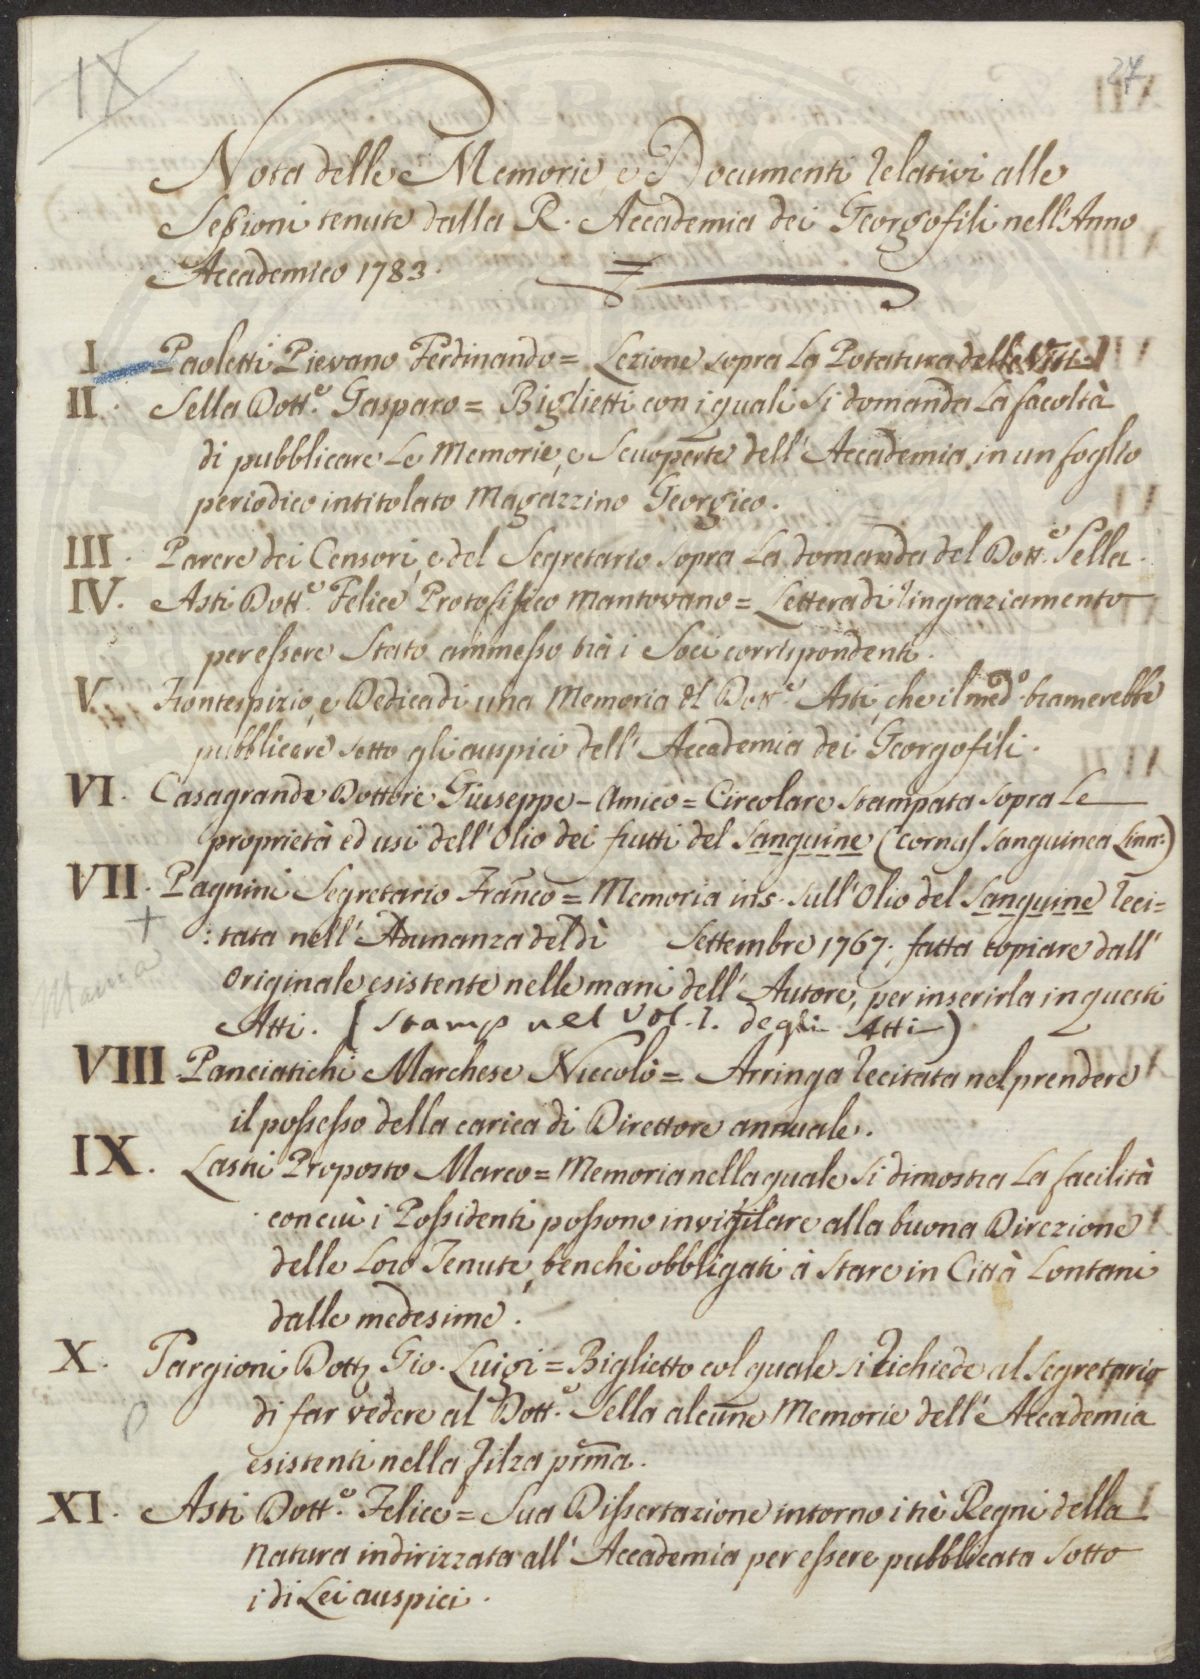 IX
27
Nota delle Memorie, e Documenti relativi alle
Sessioni tenute dalla R. Accademia dei Georgofili nell'Anno
Accademico 1783.
I. Paoletti Pievano Ferdinando = Lezione sopra la Potatura delle Viti.
II. Sella Dott.e Gasparo = Biglietti con i quali si domanda la facoltà
di pubblicare le Memorie, e Scuoperte dell'Accademia in un foglio
periodico intitolato Magazzino Georgico.
III. Parere dei Censori, e del Segretario sopra la domanda del Dott.e Sella.
IV. Asti Dott.e Felice Protofisico Mantovano = Lettera di ringraziamento
per essere stato ammesso trà i Soci corrispondenti.
V. Frontespizio, e Dedica di una Memoria del Dott.e Asti, che il med.o bramerebbe
pubblicare sotto gli auspici dell'Accademia dei Georgofili.
VI. Casagrande Dottore Giuseppe - Amico = Circolare stampata sopra le
proprietà ed usi dell'Olio dei frutti del Sanguine (Cornus sanguinea Linn:)
VII. Pagnini Segretario Franco = Memoria ins. sull'Olio del Sanguine reci=
:tata nell'Adunanza del dì Settembre 1767; fatta copiare dall'
Originale esistente nelle mani dell'Autore, per inserirla in questi
Atti. (Stamp nel vol. I. degli Atti)
VIII Panciatichi Marchese Niccolò = Arringa recitata nel prendere
il possesso della carica di Direttore annuale.
IX. Lastri Proposto Marco = Memoria nella quale si dimostra la facilità
con cui i Possidenti possono invigilare alla buona Direzione
delle loro Tenute, benchè obbligati à stare in Città lontani
dalle medesime.
X. Targioni Dott. Gio. Luigi = Biglietto col quale si richiede al Segretario
di far vedere al Dott.e Sella alcune Memorie dell'Accademia
esistenti nella Filza prma.
XI. Asti Dott.e Felice = Sua Dissertazione intorno i trè Regni della
Natura indirizzata all'Accademia per essere pubblicata sotto
i di Lei auspici.